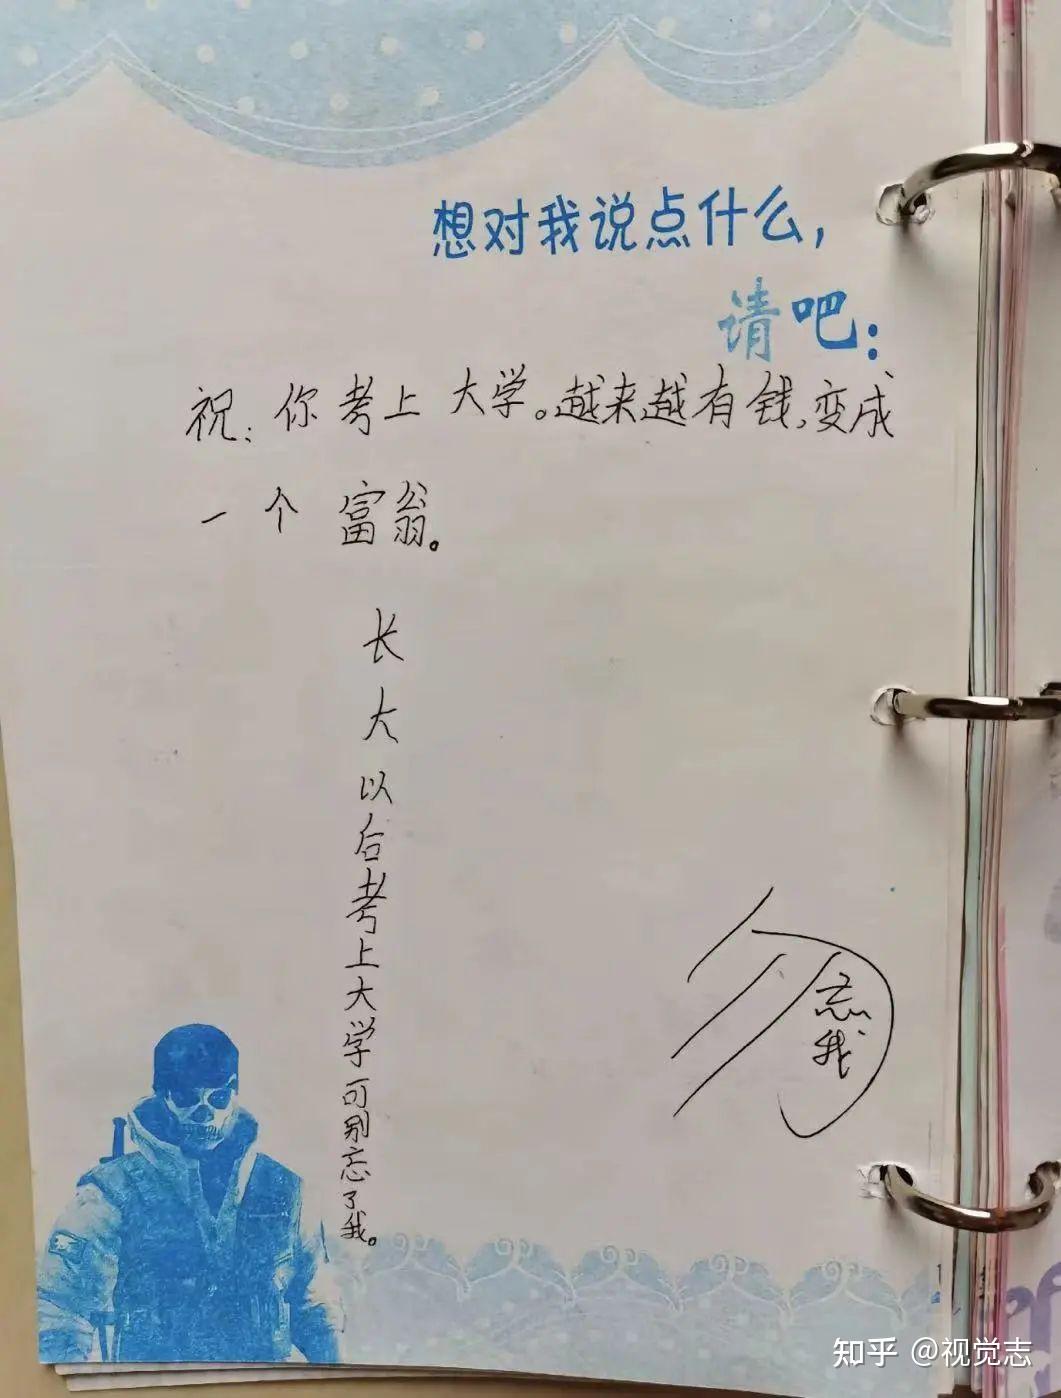 想对我说点什么,
请吧:
祝:你考上大学。越来越有钱,变成
一个富翁。
长大以后考上大学可别忘了我。
勿忘我
知乎 @视觉志